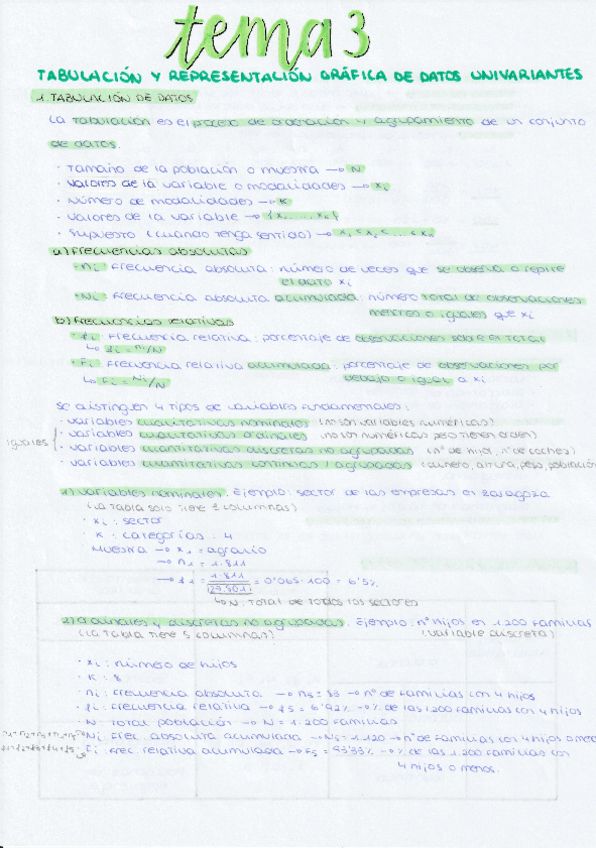 tema 3
TABULACIÓN Y REPRESENTACIÓN GRÁFICA DE DATOS UNIVARIANTES
1. TABULACIÓN DE DATOS
La tabulación es el proceso de ordenación y agrupamiento de un conjunto
de datos.
· Tamaño de la población o muestra → N
· Valores de la variable o modalidades → xi
· Número de modalidades → K
· Valores de la variable → {x1......xk}
· Supuesto (cuando tenga sentido) → x1 < x2 < ... < xk
a) Frecuencias absolutas
· ni: Frecuencia absoluta: número de veces que se observa o repite
el dato xi
· Ni: Frecuencia absoluta acumulada: número total de observaciones
menores o iguales que xi
b) Frecuencias relativas
· fi: Frecuencia relativa: porcentaje de observaciones sobre el total
↳ fi = ni/N
· Fi: Frecuencia relativa acumulada: porcentaje de observaciones por
↳ Fi = Ni/N debajo o igual a xi
Se distinguen 4 tipos de variables fundamentales:
· variables cualitativas nominales (no son variables numéricas)
iguales { · variables cualitativas ordinales (no son numéricas pero tienen orden)
· variables cuantitativas discretas no agrupadas (nº de hijos, nº de coches)
· variables cuantitativas continuas / agrupadas (dinero, altura, peso, población
1) Variables nominales. Ejemplo: sector de las empresas en Zaragoza
(La tabla solo tiene 3 columnas)
· xi: sector
· K: categorías: 4
Muestra → x1 = agrario
→ n1 = 1.811
→ f1 = 1.811 / 27.801 = 0'065·100 = 6'5%
↳ N: Total de todos los sectores
2) Ordinales y discretas no agrupadas. Ejemplo: nº hijos en 1.200 familias
(La tabla tiene 5 columnas) (variable discreta)
· xi: número de hijos
· K: 8
· ni: frecuencia absoluta → n5 = 83 → nº de familias con 4 hijos
· fi: frecuencia relativa → f5 = 6'92% → % de las 1.200 familias con 4 hijos
· N: total población → N = 1.200 familias
n1+n2+n3+n4+n5 · Ni: frec. absoluta acumulada → N5 = 1.120 → nº de familias con 4 hijos o menos
f1+f2+f3+f4+f5 · Fi: frec. relativa acumulada → F5 = 93'33% → % de las 1.200 familias con
4 hijos o menos.